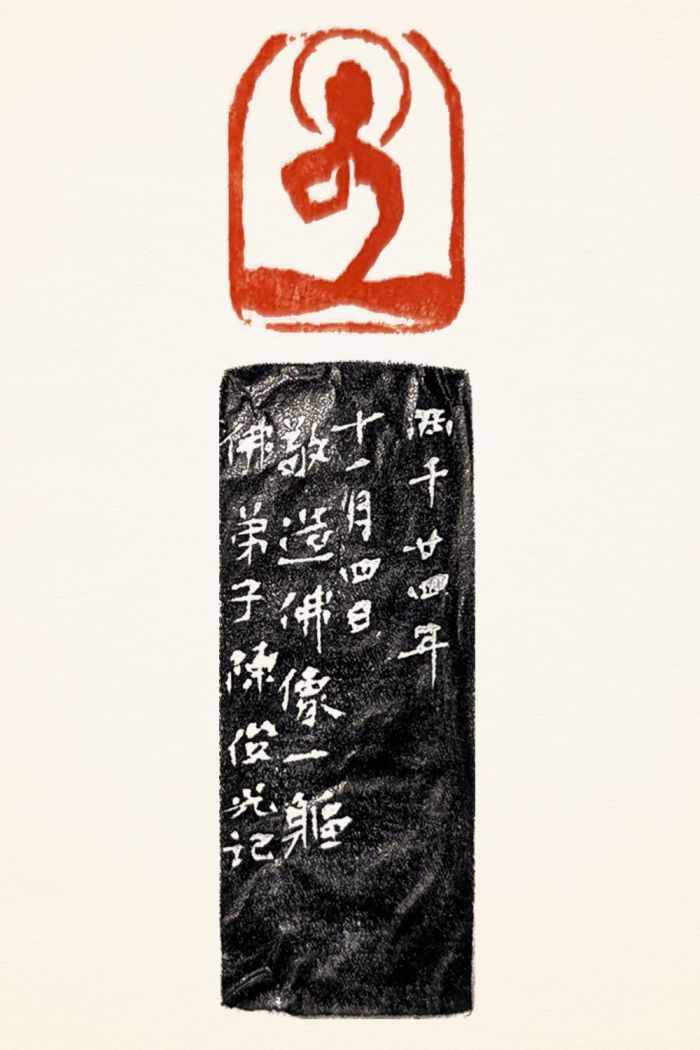 千廿四年
十一月四日
敬造佛像一軀
佛弟子陳俊光记